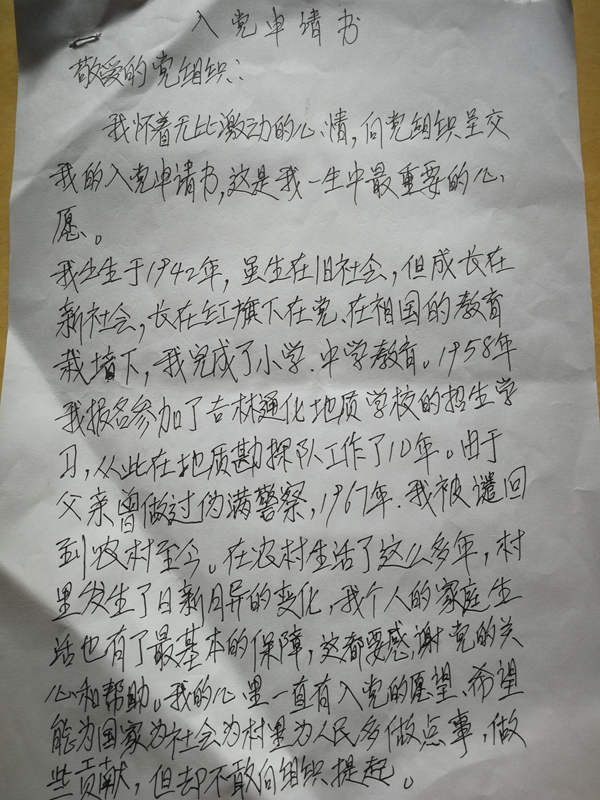 入党申请书
敬爱的党组织:
我怀着无比激动的心情,向党组织呈交
我的入党申请书,这是我一生中最重要的心
愿。
我出生于1942年,虽生在旧社会,但成长在
新社会,长在红旗下在党、在祖国的教育
栽培下,我完成了小学.中学教育。1958年
我报名参加了吉林通化地质学校的招生学
习,从此在地质勘探队工作了10年。由于
父亲曾做过伪满警察,1967年.我被遣回
到农村至今。在农村生活了这么多年,村
里发生了日新月异的变化,我个人的家庭生
活也有了最基本的保障,这都要感谢党的关
心和帮助。我的心里一直有入党的愿望、希望
能为国家为社会为村里为人民多做点事,做
些贡献,但却不敢向组织提起。